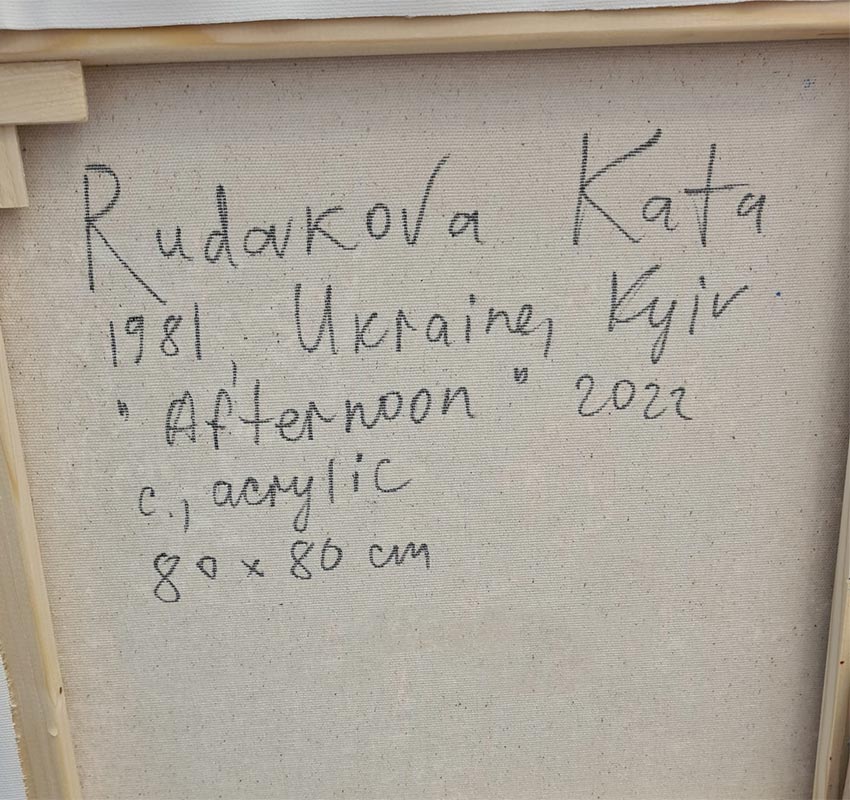 Rudakova Kata
1981, Ukraine, Kyiv
"Afternoon" 2022
c., acrylic
80 x 80 cm